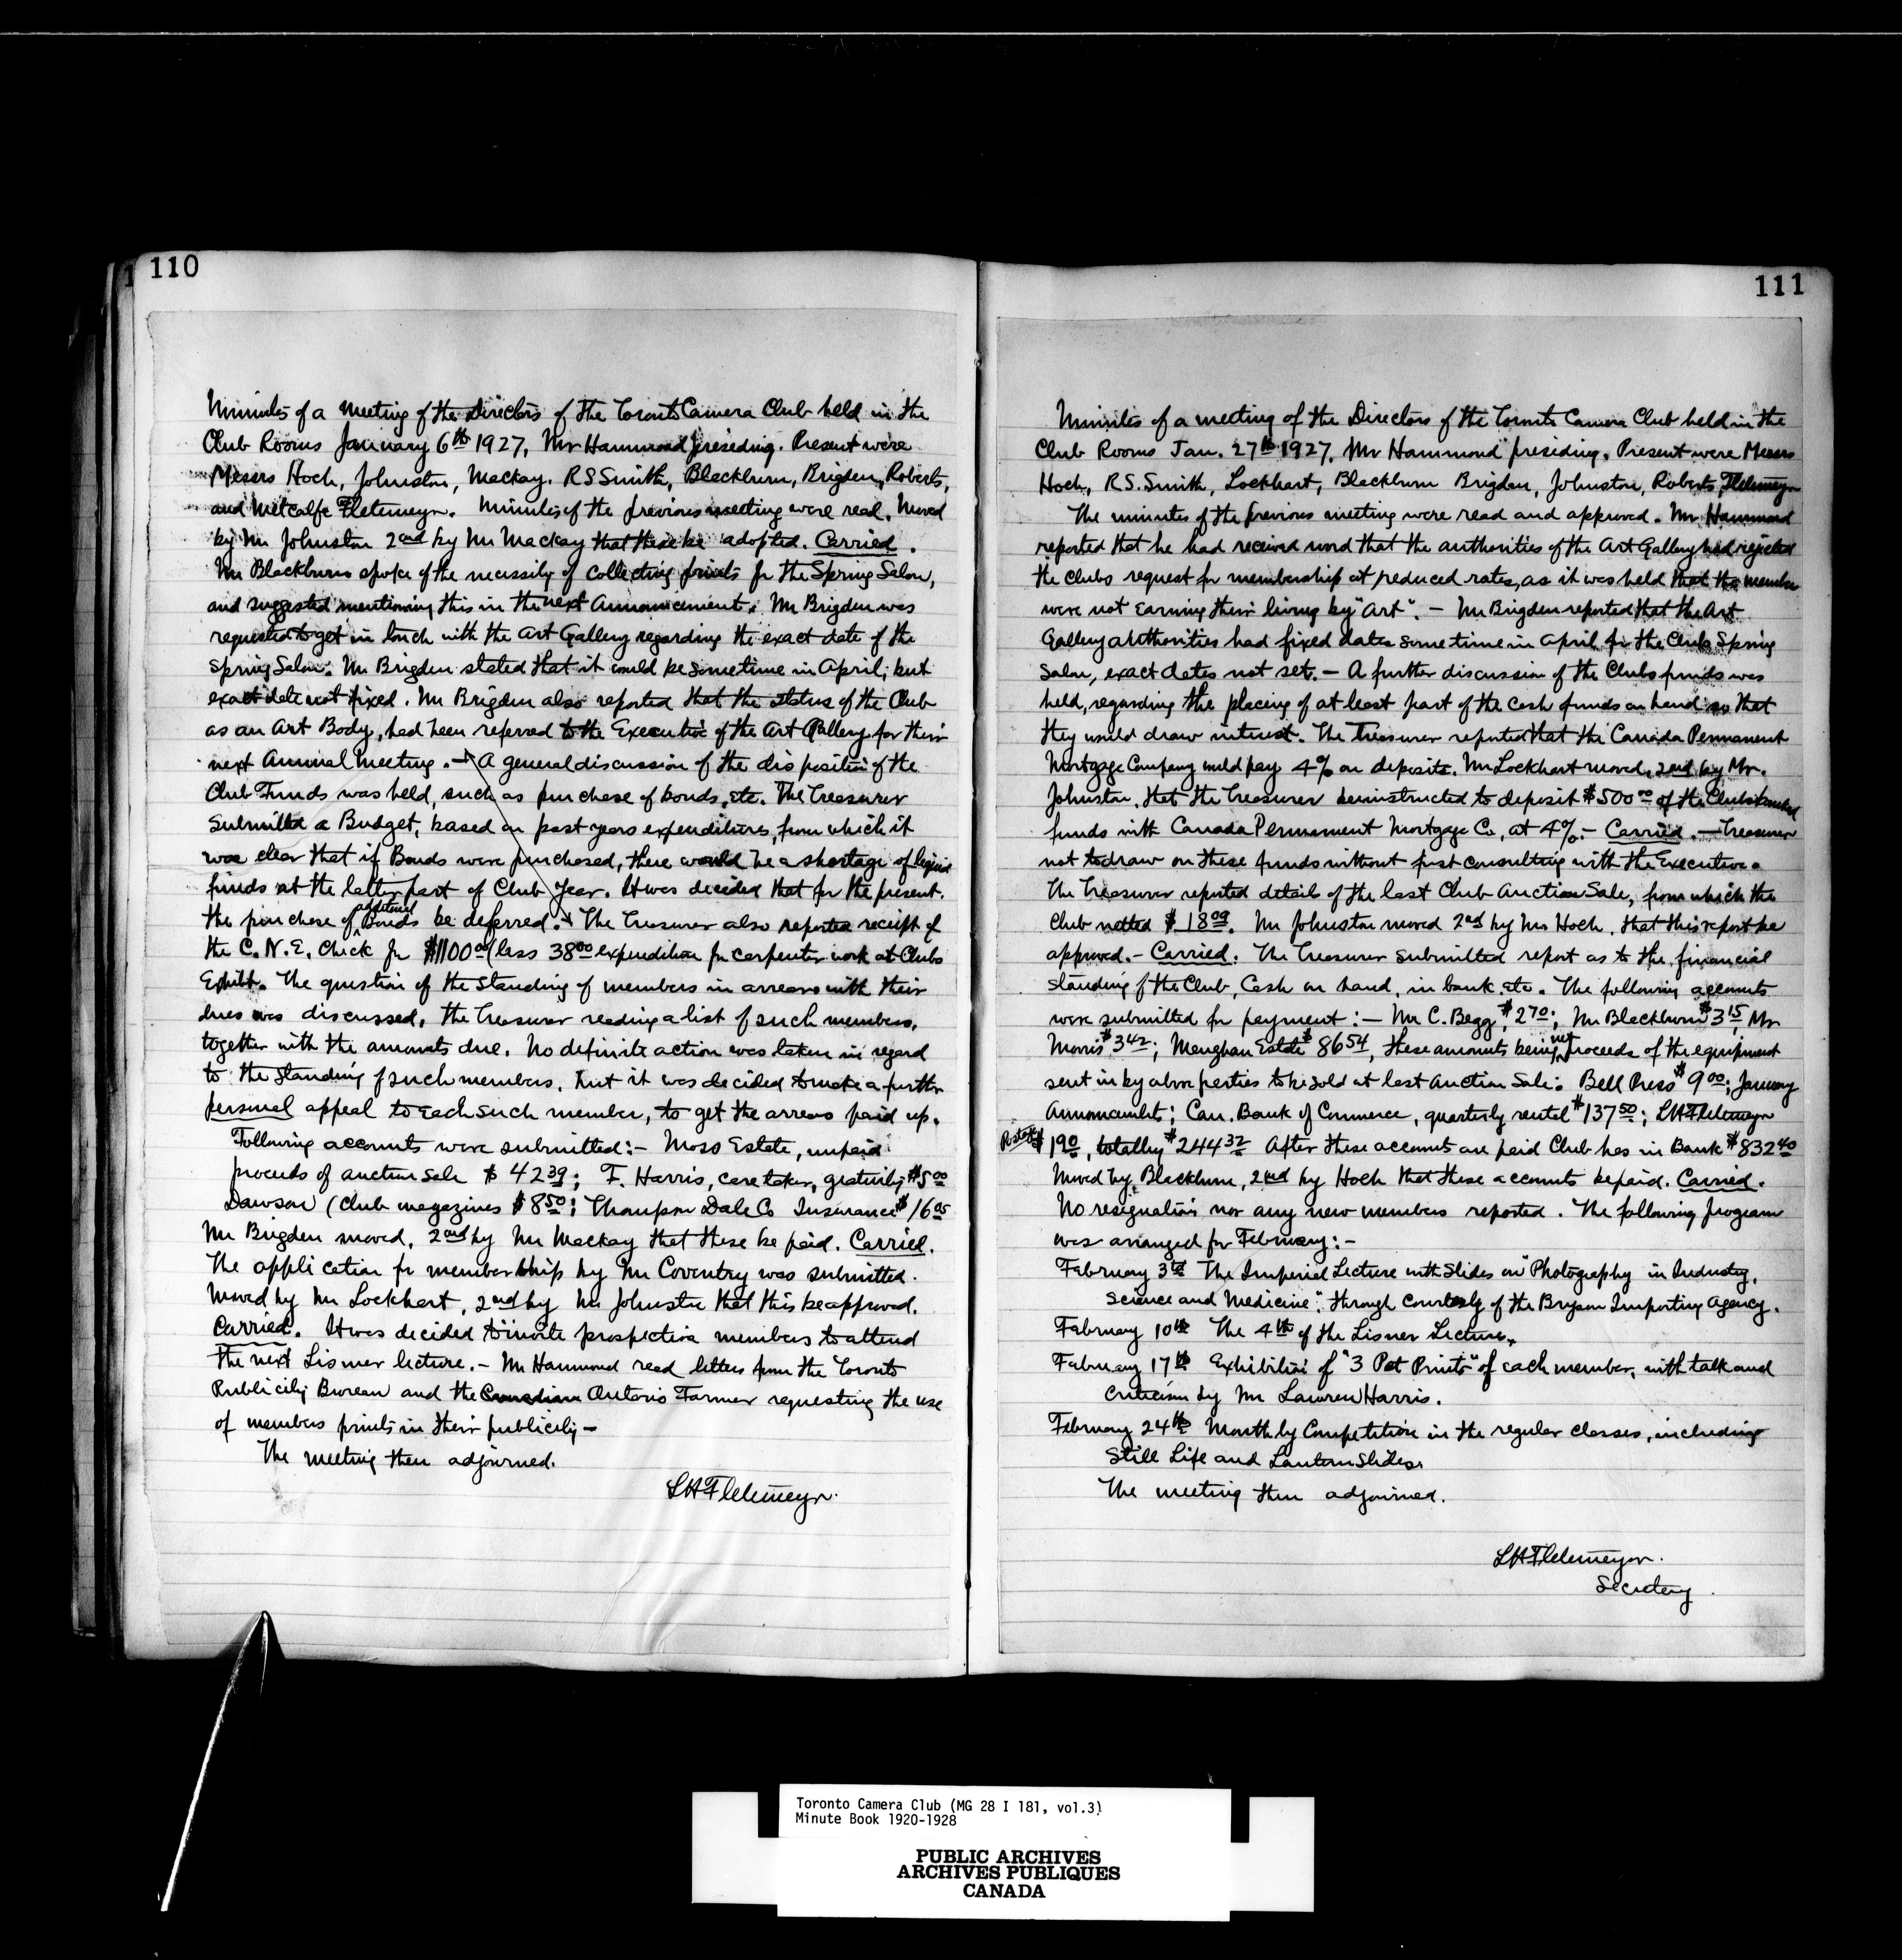 110
Minutes of a meeting of the Directors of the Toronto Camera Club held in the
Club Rooms January 6th 1927, Mr Hammond presiding. Present were
Messrs Hoch, Johnston, Mackay. R S Smith, Blackburn, Brigden, Roberts,
and Metcalfe Fletemeyer. Minutes of the previous meeting were read. Moved
by Mr Johnston 2nd by Mr Mackay that these be adopted. Carried.
Mr Blackburn spoke of the necessity of collecting prints for the Spring Salon,
and suggested mentioning this in the next Announcement. Mr Brigden was
requested to get in touch with the Art Gallery regarding the exact date of the
Spring Salon. Mr Brigden stated that it would be sometime in April, but
exact date not fixed. Mr Brigden also reported that the status of the Club
as an Art Body, had been referred to the Executive of the Art Gallery for their
next Annual Meeting. — A general discussion of the disposition of the
Club Funds was held, such as purchase of bonds, etc. The Treasurer
submitted a Budget, based on past years expenditures, from which it
was clear that if Bonds were purchased, there would be a shortage of liquid
funds at the latter part of Club Year. It was decided that for the present
the purchase of additional Bonds be deferred. The Treasurer also reported receipt of
the C.N.E. Check for $1100.00 less 38.00 expenditure for carpenter work at Clubs
Exhibit. The question of the standing of members in arrears with their
dues was discussed, the Treasurer reading a list of such members,
together with the amounts due. No definite action was taken in regard
to the standing of such members, but it was decided to make a further
personal appeal to each such member, to get the arrears paid up.
Following accounts were submitted:— Moss Estate, unpaid
proceeds of auction sale $42.39; F. Harris, caretaker, gratuity $5.00
Dawson (Club magazines $8.50; Thompson Dale Co Insurance $16.05
Mr Brigden moved, 2nd by Mr Mackay that these be paid. Carried.
The application for membership by Mr Coventry was submitted.
Moved by Mr Lockhart, 2nd by Mr Johnston that this be approved.
Carried. It was decided to invite prospective members to attend
the next Lismer lecture. — Mr Hammond read letters from the Toronto
Publicity Bureau and the Canadian Ontario Farmer requesting the use
of members prints in their publicity —
The meeting then adjourned.
L H Fletemeyer.
111
Minutes of a meeting of the Directors of the Toronto Camera Club held in the
Club Rooms Jan. 27th 1927, Mr Hammond presiding. Present were Messrs
Hoch, R S. Smith, Lockhart, Blackburn Brigden, Johnston, Roberts, Fletemeyer
The minutes of the previous meeting were read and approved. Mr Hammond
reported that he had received word that the authorities of the Art Gallery had rejected
the Clubs request for membership at reduced rates, as it was held that the members
were not earning their living by "Art". — Mr Brigden reported that the Art
Gallery Authorities had fixed dates sometime in April for the Clubs Spring
Salon, exact dates not set. — A further discussion of the Clubs funds was
held, regarding the placing of at least part of the cash funds on hand so that
they would draw interest. The Treasurer reported that the Canada Permanent
Mortgage Company would pay 4% on deposits. Mr Lockhart moved, 2nd by Mr.
Johnston, that the Treasurer be instructed to deposit $500.00 of the Clubs
funds with Canada Permanent Mortgage Co, at 4%. — Carried. — Treasurer
not to draw on these funds without first consulting with the Executive.
The Treasurer reported detail of the last Club Auction Sale, from which the
Club netted $18.09. Mr Johnston moved 2nd by Mr Hoch, that this report be
approved. — Carried. The Treasurer submitted report as to the financial
standing of the Club, Cash on hand, in bank. etc. The following accounts
were submitted for payment:— Mr C. Begg, $2.70; Mr Blackburn $3.15, Mr
Morris $3.42; Meughan Estate $86.54, these amounts being net proceeds of the equipment
sent in by above parties to be sold at last Auction Sale. Bell Press $9.00; January
Announcement; Can. Bank of Commerce, quarterly rental $137.50; L H Fletemeyer
Postage $1.90, totalling $244.32 After these accounts are paid Club has in Bank $832.40
Moved by Blackburn, 2nd by Hoch that these accounts be paid. Carried.
No resignations nor any new members reported. The following program
was arranged for February:—
February 3rd The Imperial Lecture with Slides on "Photography in Industry,
Science and Medicine", through courtesy of the Bryson Importing Agency.
February 10th The 4th of the Lismer Lectures.
February 17th Exhibition of "3 Pet Prints" of each member, with talk and
criticism by Mr Lawren Harris.
February 24th Monthly Competition in the regular classes, including
Still Life and Lantern Slides.
The meeting then adjourned.
L H Fletemeyer.
Secretary
Toronto Camera Club (MG 28 I 181, vol.3)
Minute Book 1920-1928
PUBLIC ARCHIVES
ARCHIVES PUBLIQUES
CANADA